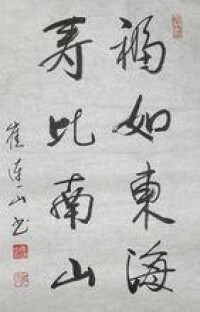 福如東海
寿比南山
崔連山书